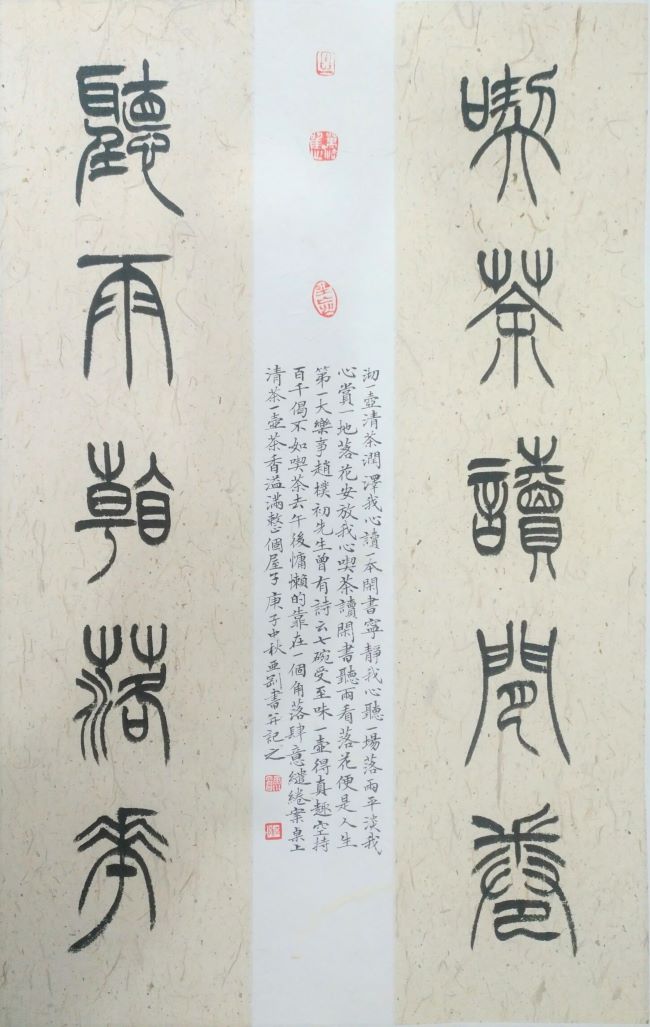 喫茶讀閒卷
沏一壺清茶潤澤我心讀一本閑書寧靜我心聽一場落雨平淡我
心賞一地落花安放我心喫茶讀閑書聽雨看落花便是人生
第一大樂事趙樸初先生曾有詩云七碗受至味一壺得真趣空持
百千偈不如喫茶去午後慵懶的靠在一個角落肆意繾綣案桌上
清茶一壺茶香溢滿整個屋子庚子中秋亞剛書并記之
聽雨看落花